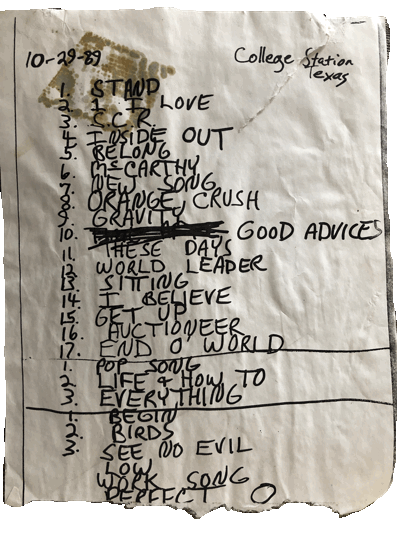 10-29-89 College Station
Texas
1. STAND
2. 1 I LOVE
3. C.C.R.
4. INSIDE OUT
5. BELONG
6. McCARTHY
7. NEW SONG
8. ORANGE CRUSH
9. GRAVITY
10. GOOD ADVICES
11. THESE DAYS
12. WORLD LEADER
13. SITTING
14. I BELIEVE
15. GET UP
16. AUCTIONEER
17. END O' WORLD
1. POP SONG
2. LIFE & HOW TO
3. EVERYTHING
1. BEGIN
2. BIRDS
3. SEE NO EVIL
LOW
WORK SONG
PERFECT O